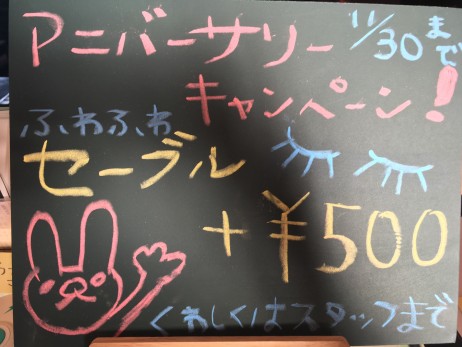 アニバーサリー 11/30まで
キャンペーン！
ふわふわ
セーブル
+¥500
くわしくはスタッフまで